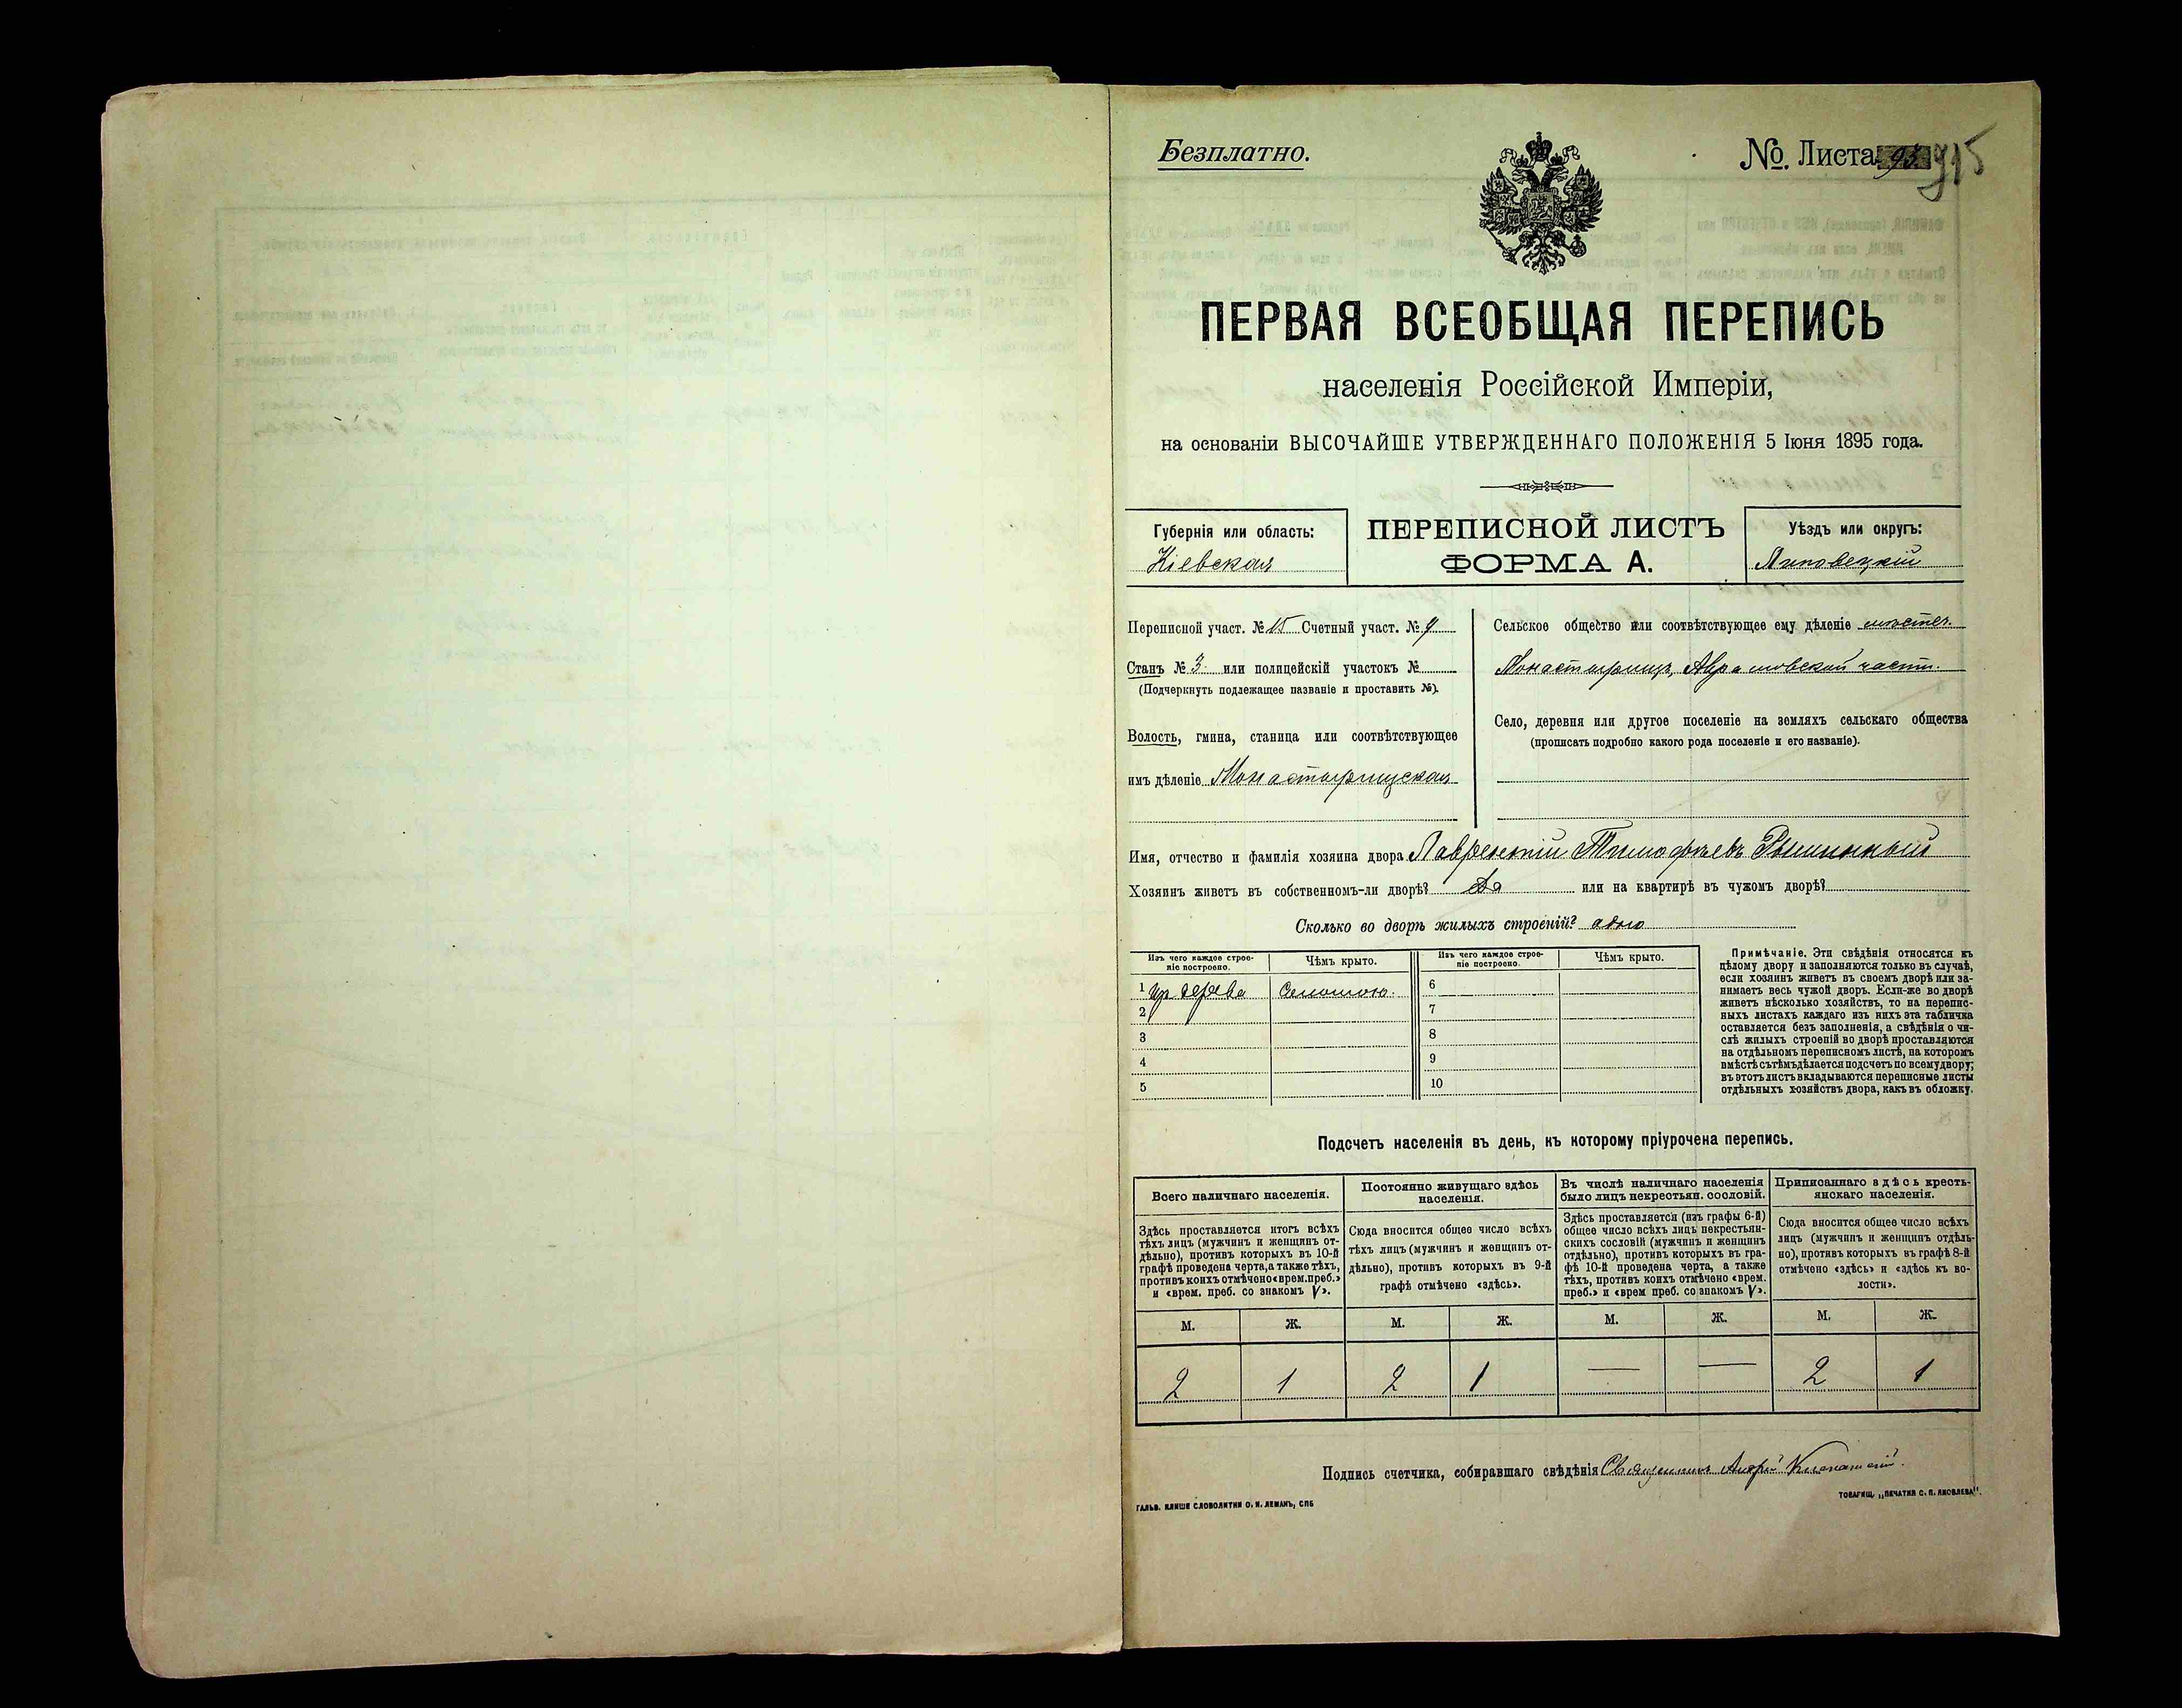 Безплатно.
№. Листа 93. 915
ПЕРВАЯ ВСЕОБЩАЯ ПЕРЕПИСЬ
населенія Россійской Имперіи,
на основаніи ВЫСОЧАЙШЕ УТВЕРЖДЕННАГО ПОЛОЖЕНІЯ 5 Іюня 1895 года.
Губернія или область:
Кіевская
ПЕРЕПИСНОЙ ЛИСТЪ
ФОРМА А.
Уѣздъ или округъ:
Липовецкій
Переписной участ. № 15 Счетный участ. № 9
Станъ № 3 или полицейскій участокъ №
(Подчеркнуть подлежащее названіе и проставить №).
Волость, гмина, станица или соотвѣтствующее
имъ дѣленіе Монастырищская
Сельское общество или соотвѣтствующее ему дѣленіе мѣстеч.
Монастырищъ, части.
Село, деревня или другое поселеніе на земляхъ сельскаго общества
(прописать подробно какого рода поселеніе и его названіе).
Имя, отчество и фамилія хозяина двора Лаврентій Тимофѣевъ
Хозяинъ живетъ въ собственномъ-ли дворѣ? Да или на квартирѣ въ чужомъ дворѣ?
Сколько во дворѣ жилыхъ строеній? одно
Изъ чего каждое строе-
ніе построено.
Чѣмъ крыто.
Изъ чего каждое строе-
ніе построено.
Чѣмъ крыто.
1 изъ дерева Соломою.
2
3
4
5
6
7
8
9
10
Примѣчаніе. Эти свѣдѣнія относятся къ
цѣлому двору и заполняются только въ случаѣ,
если хозяинъ живетъ въ своемъ дворѣ или за-
нимаетъ весь чужой дворъ. Если-же во дворѣ
живетъ нѣсколько хозяйствъ, то на перепис-
ныхъ листахъ каждаго изъ нихъ эта табличка
оставляется безъ заполненія, а свѣдѣнія о чи-
слѣ жилыхъ строеній во дворѣ проставляются
на отдѣльномъ переписномъ листѣ, на которомъ
вмѣстѣ съ тѣмъ дѣлается подсчетъ по всему двору;
въ этотъ листъ вкладываются переписные листы
отдѣльныхъ хозяйствъ двора, какъ въ обложку.
Подсчетъ населенія въ день, къ которому пріурочена перепись.
Всего наличнаго населенія.
Здѣсь проставляется итогъ всѣхъ
тѣхъ лицъ (мужчинъ и женщинъ от-
дѣльно), противъ которыхъ въ 10-й
графѣ проведена черта, а также тѣхъ,
противъ коихъ отмѣчено «врем. преб.»
и «врем. преб. со знакомъ V».
Постоянно живущаго здѣсь
населенія.
Сюда вносится общее число всѣхъ
тѣхъ лицъ (мужчинъ и женщинъ от-
дѣльно), противъ которыхъ въ 9-й
графѣ отмѣчено «здѣсь».
Въ числѣ наличнаго населенія
было лицъ некрестьян. сословій.
Здѣсь проставляется (изъ графы 6-й)
общее число всѣхъ лицъ некрестьян-
скихъ сословій (мужчинъ и женщинъ
отдѣльно), противъ которыхъ въ гра-
фѣ 10-й проведена черта, а также
тѣхъ, противъ коихъ отмѣчено «врем.
преб.» и «врем преб. со знакомъ V».
Приписаннаго здѣсь кресть-
янскаго населенія.
Сюда вносится общее число всѣхъ
лицъ (мужчинъ и женщинъ отдѣль-
но), противъ которыхъ въ графѣ 8-й
отмѣчено «здѣсь» и «здѣсь къ во-
лости».
М. Ж. М. Ж. М. Ж. М. Ж.
2 1 2 1 — — 2 1
Подпись счетчика, собиравшаго свѣдѣнія Священникъ
ГАЛЬВ. КЛИШЕ СЛОВОЛИТНИ О. И. ЛЕМАНЪ, СПБ
ТОВАРИЩ. „ПЕЧАТНЯ С. П. ЯКОВЛЕВА".